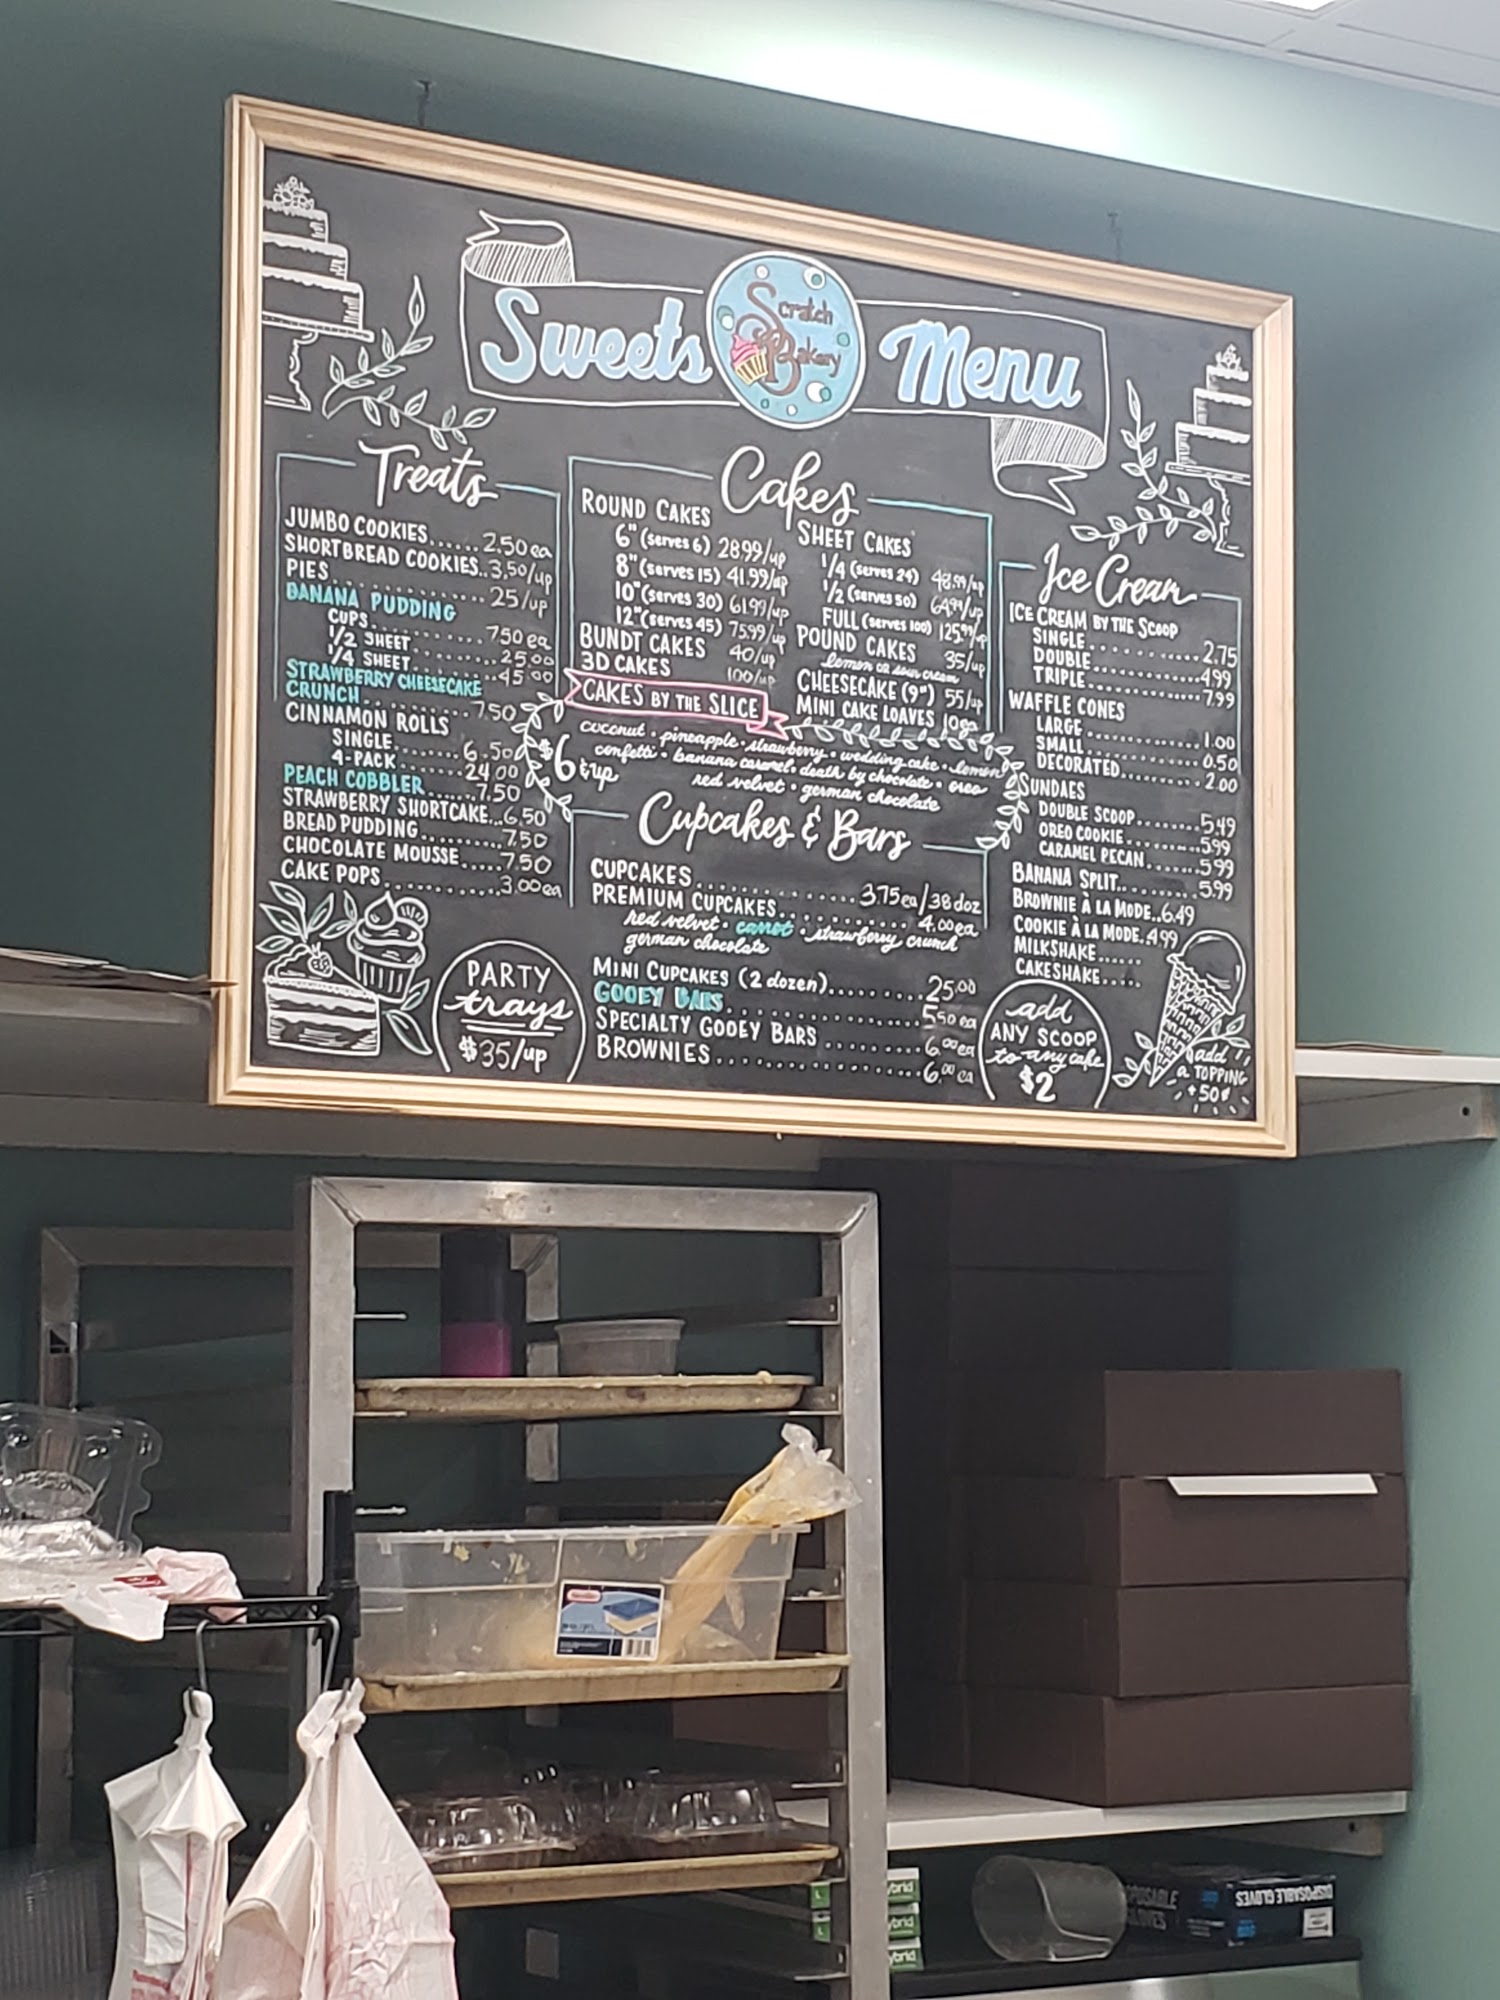 Sweets
Scratch
Bakery
Menu
Treats
JUMBO COOKIES......2.50 ea
SHORTBREAD COOKIES..3.50/up
PIES..........25/up
BANANA PUDDING
CUPS............7.50 ea
1/2 SHEET.........25.00
1/4 SHEET.........45.00
STRAWBERRY CHEESECAKE
CRUNCH..........7.50
CINNAMON ROLLS
SINGLE........6.50
4-PACK........24.00
PEACH COBBLER......7.50
STRAWBERRY SHORTCAKE...6.50
BREAD PUDDING.........7.50
CHOCOLATE MOUSSE.....7.50
CAKE POPS............3.00 ea
PARTY
trays
$35/up
Cakes
ROUND CAKES
6" (serves 6) 28.99/up
8" (serves 15) 41.99/up
10" (serves 30) 61.99/up
12" (serves 45) 75.99/up
BUNDT CAKES 40/up
3D CAKES 100/up
SHEET CAKES
1/4 (serves 24) 48.99/up
1/2 (serves 50) 64.99/up
FULL (serves 100) 125.99/up
POUND CAKES 35/up
lemon or sour cream
CHEESECAKE (9") 55/up
MINI CAKE LOAVES 10 ea
CAKES BY THE SLICE
$6 & up
coconut · pineapple · strawberry · wedding cake · lemon
confetti · banana caramel · death by chocolate · oreo
red velvet · german chocolate
Cupcakes & Bars
CUPCAKES...............3.75 ea/38 doz
PREMIUM CUPCAKES...........4.00 ea
red velvet · carrot · strawberry crunch
german chocolate
MINI CUPCAKES (2 dozen).........25.00
GOOEY BARS..................5.50 ea
SPECIALTY GOOEY BARS.........6.00 ea
BROWNIES...................6.00 ea
Ice Cream
ICE CREAM BY THE SCOOP
SINGLE...........2.75
DOUBLE...........4.99
TRIPLE...........7.99
WAFFLE CONES
LARGE...........1.00
SMALL...........0.50
DECORATED........2.00
SUNDAES
DOUBLE SCOOP........5.49
OREO COOKIE.........5.99
CARAMEL PECAN.......5.99
BANANA SPLIT..........5.99
BROWNIE À LA MODE..6.49
COOKIE À LA MODE.4.99
MILKSHAKE......
CAKESHAKE.....
add
ANY SCOOP
to any cake
$2
add
a TOPPING
+50¢
L
ybrid
L
ybrid
ybrid
DISPOSABLE GLOVES